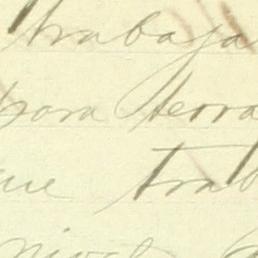 trabaja
para terra
que trab
nivel